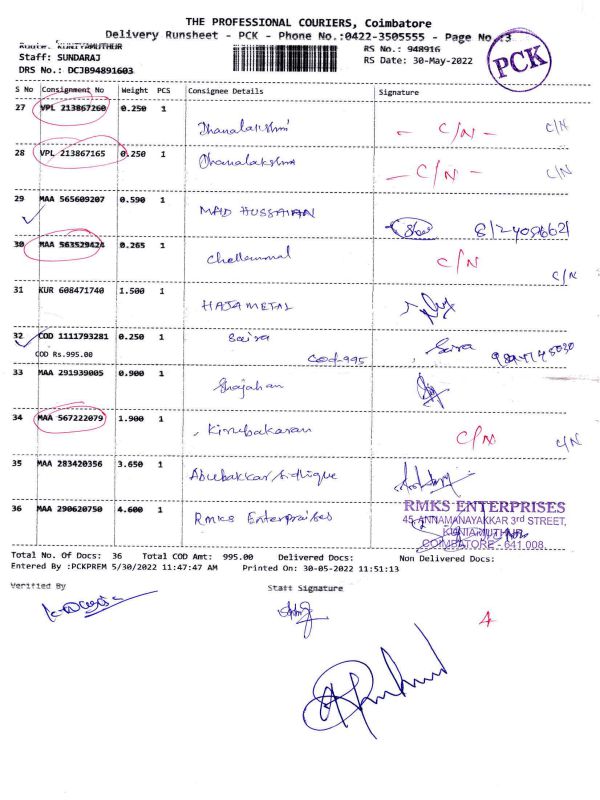 THE PROFESSIONAL COURIERS, Coimbatore
Delivery Runsheet - PCK - Phone No.:0422-3505555 - Page No.:3
Route: KUNIYAMUTHUR
RS No.: 948916
Staff: SUNDARAJ
RS Date: 30-May-2022
DRS No.: DCJB94891603
PCK
S No Consignment No Weight PCS Consignee Details Signature
27 VPL 213867260 0.250 1 Dhanalakshmi - C/N - C/N
28 VPL 213867165 0.250 1 Dhanalakshmi - C/N - C/N
29 MAA 565609207 0.590 1 MAID HUSSAIAN
30 MAA 563529424 0.265 1 Chellammal C/N C/N
31 KUR 608471740 1.500 1 HAJA METAL
32 COD 1111793281 0.250 1 Saira Saira
COD Rs.995.00 COD-995
33 MAA 291939005 0.900 1 Shajahan
34 MAA 567222079 1.900 1 Kirubakaran C/N C/N
35 MAA 283420356 3.650 1 Abubakkar Sidhique
36 MAA 290620750 4.600 1 Rmks Enterprises
RMKS ENTERPRISES
45, ANNAMANAYAKKAR 3rd STREET,
KUNIAMUTHUR
COIMBATORE - 641 008.
Total No. Of Docs: 36 Total COD Amt: 995.00 Delivered Docs: Non Delivered Docs:
Entered By :PCKPREM 5/30/2022 11:47:47 AM Printed On: 30-05-2022 11:51:13
Verified By Staff Signature
4